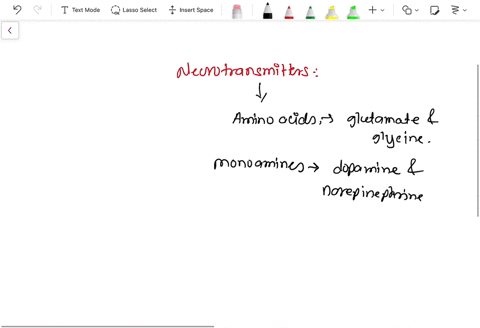 Text Mode Lasso Select Insert Space
Neurotransmitters:
↓
Amino acids, → glutamate &
glycine.
monoamines → dopamine &
norepinephrine